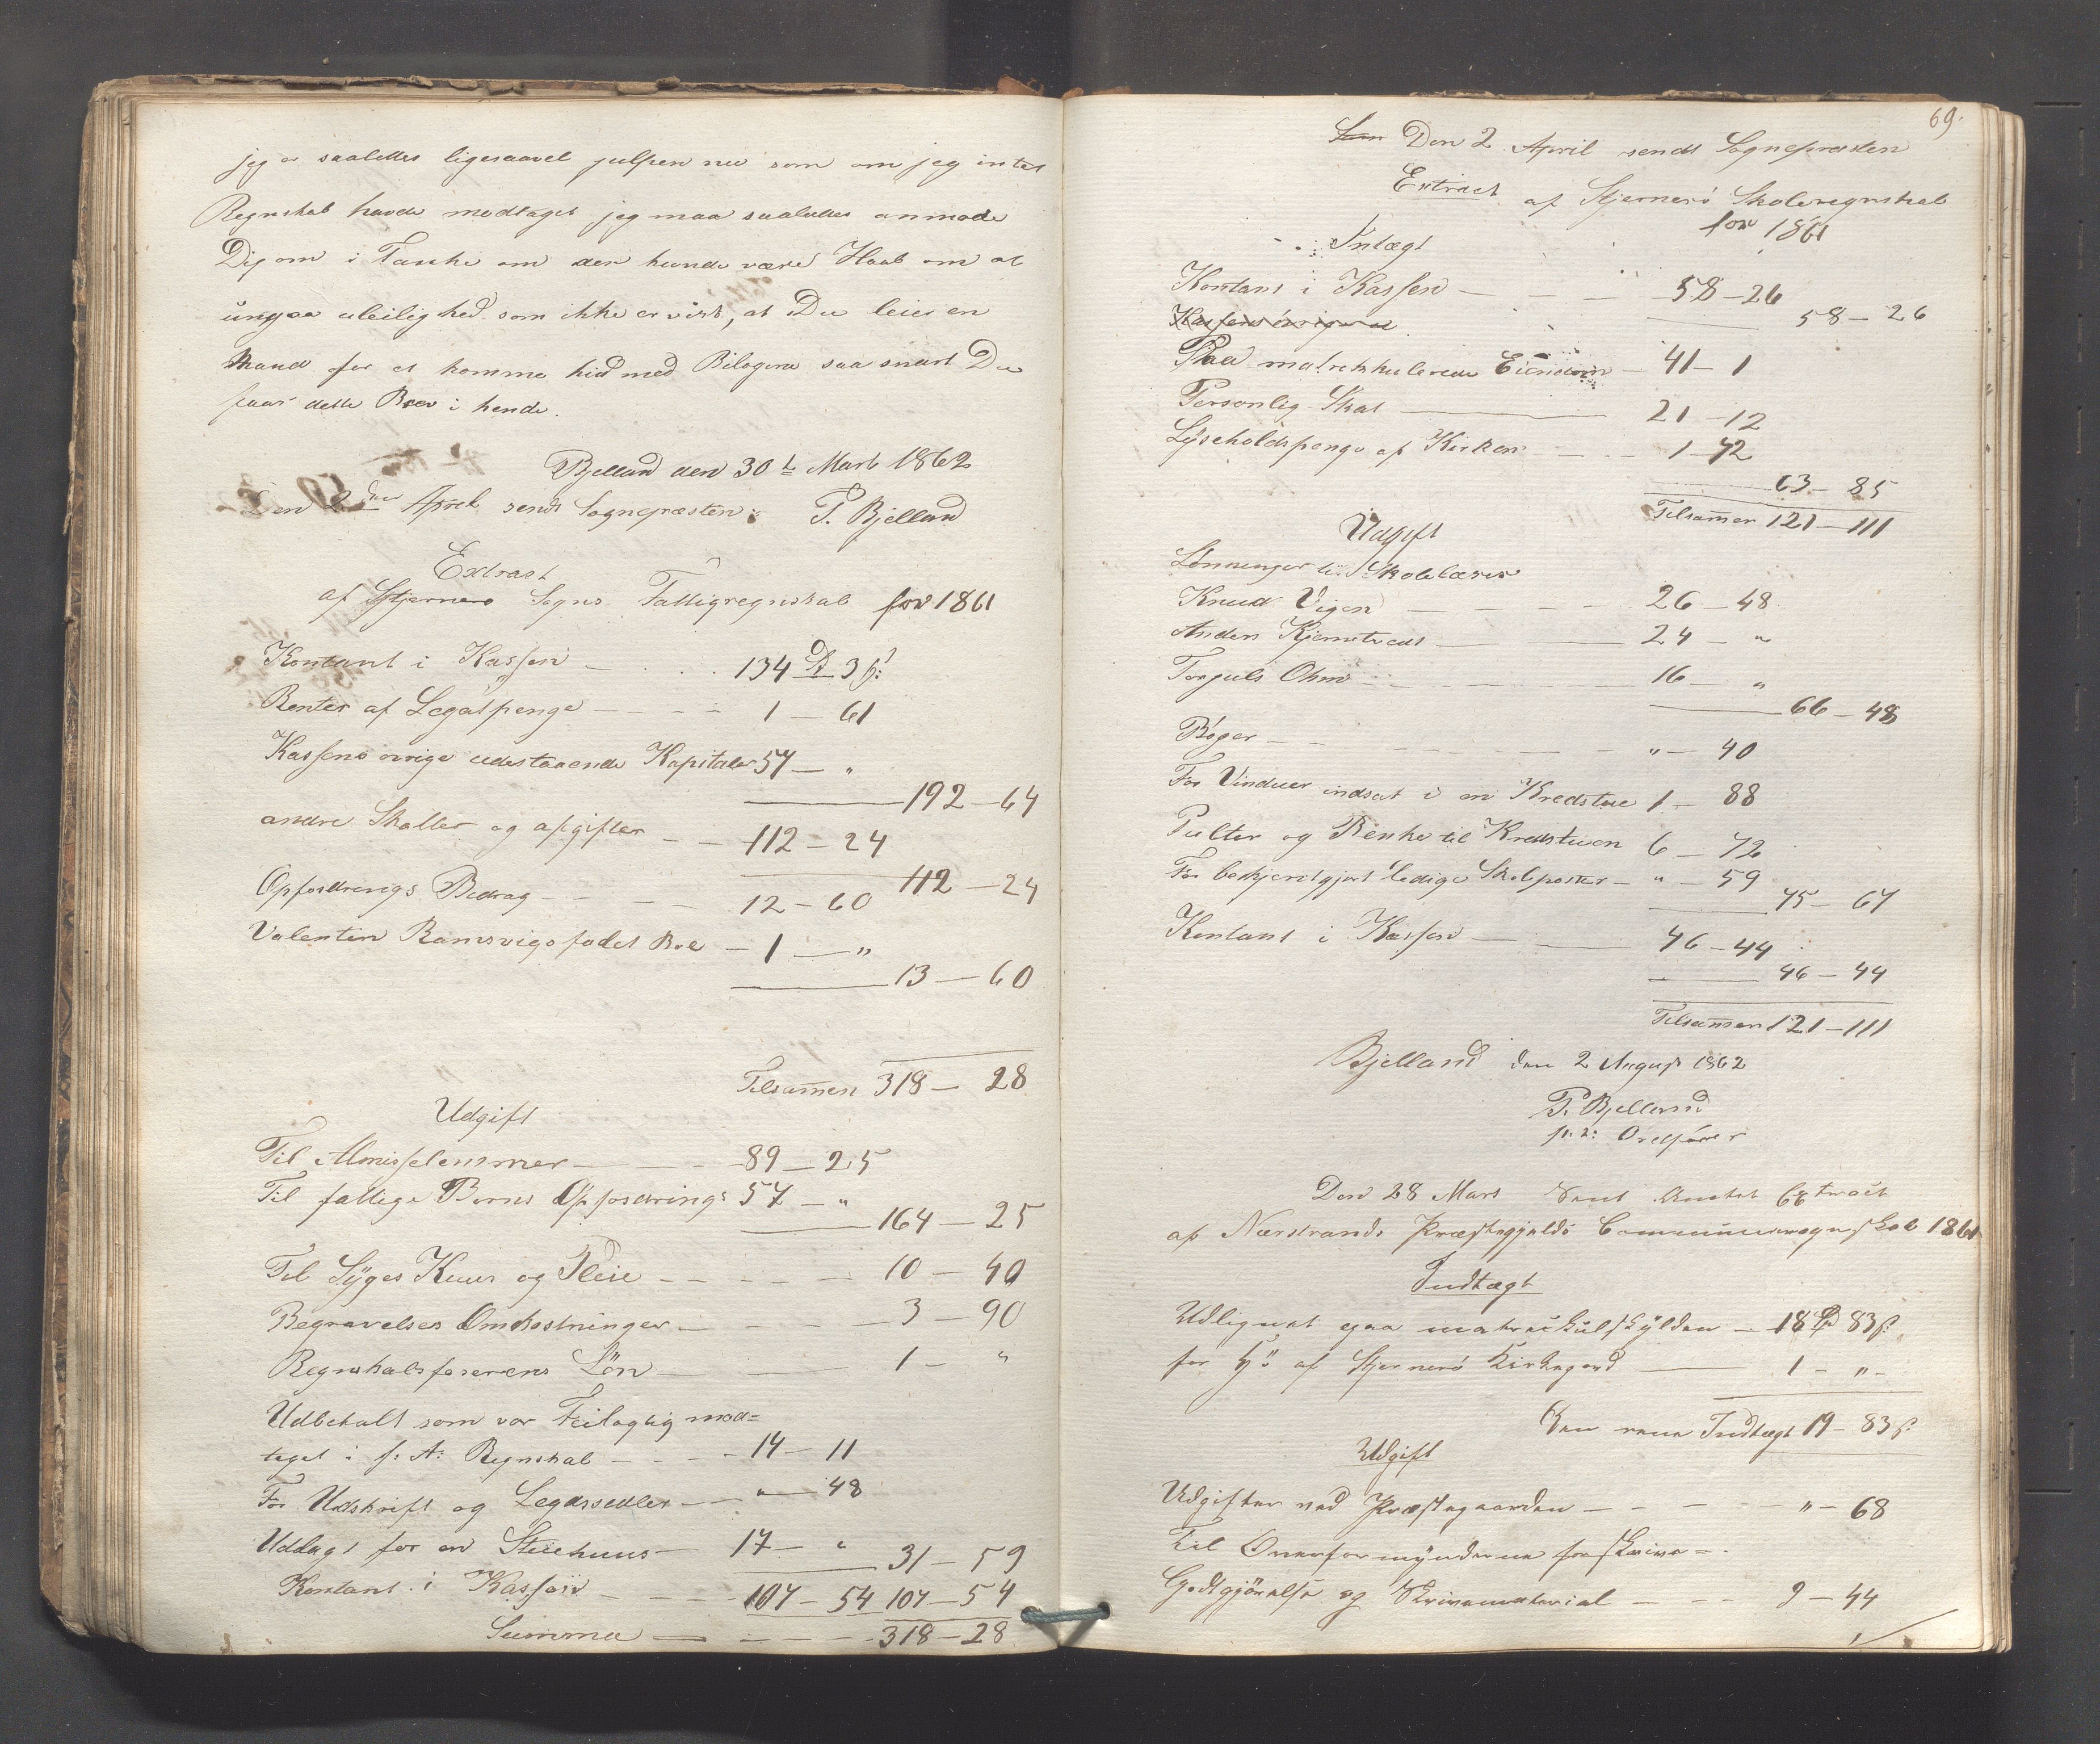 jeg er saaledes ligesaavel julpen nu som om jeg intet
Regnskab havde modtaget jeg maa saaledes anmode
Dig om i Fald om der kunde være Haab om at
ungaa uleilighed som ikke er vist, at Du leier en
Mand for at komme hid med Bilagene saa snart Du
faar dette Brev i hende.
Bjelland den 30te Marts 1862
Den 2den April sendt Sognepræsten: P. Bjelland
Extract
af Stjernerø Sogns Fattigregnskab for 1861
Kontant i Kassen — 134 D 3 ß:
Renter af Legatspenge — 1 — 61
Kassens øvrige udestaaende Kapitaler 57 — "
192 — 64
andre Skatter og afgifter — 112 — 24
112 — 24
Opfostrings Bidrag — 12 — 60
Valentin Ramsvigs fadet Boe — 1 — "
13 — 60
Tilsamen 318 — 28
Udgift
Til Almisselemmer — 89 — 25
Til fattige Børns Opfostrings 57 — "
164 — 25
Til Syges Kuur og Pleie — 10 — 40
Begravelses Omkostninger — 3 — 90
Regnskabsførerens Løn — 1 — "
Udbetalt som var Feilagtig mod=
taget i f: A: Regnskab — 14 — 11
For Udskrift og Legdssedler — " — 48
Uddagt for en Stuehuus — 17 — "
31 — 59
Kontant i Kassen — 107 — 54 107 — 54
Summa — 318 — 28
69.
Den 2 April sendt Sognepræsten
Extract af Stjernerø Skoleregnskab
for 1861
Intægt
Kontant i Kassen — 58 — 26
Kassens øvrige
58 — 26
Paa matrekkulerede Eiendom — 41 — 1
Personlig Skat — 21 — 12
Lyseholdspenge af Kirken — 1 — 72
63 — 85
Tilsamen 121 — 111
Udgift
Lønninger til Skolelærer
Knud Vigen — 26 — 48
Anders Kjemstvedt — 24 — "
Torjuls Ohm — 16 — "
66 — 48
Bøger — " — 40
For Vinduer indsat i en Kredstue 1 — 88
Pulter og Benke til Kredstuen 6 — 72
For bekjentgjort ledige Skolposter — " — 59
75 — 67
Kontant i Kassen — 46 — 44
46 — 44
Tilsamen 121 — 111
Bjelland den 2 August 1862
P. Bjelland
p: t: Ordfører
Den 28 Mars Sent Amtet Extract
af Nærstrands Præstegjelds Communeregnskab 1861
Indtægt
Udlignet paa matrickulskylden — 18 D 83 ß
for Hö af Stjernerø Kirkegard — 1 — " —
Den rene Indtægt 19 — 83 ß
Udgift
Udgifter ved Præstegaarden — " — 68
Til Overformynderne for skrive=
Godtgjørelse og Skrivematerial — 9 — 44